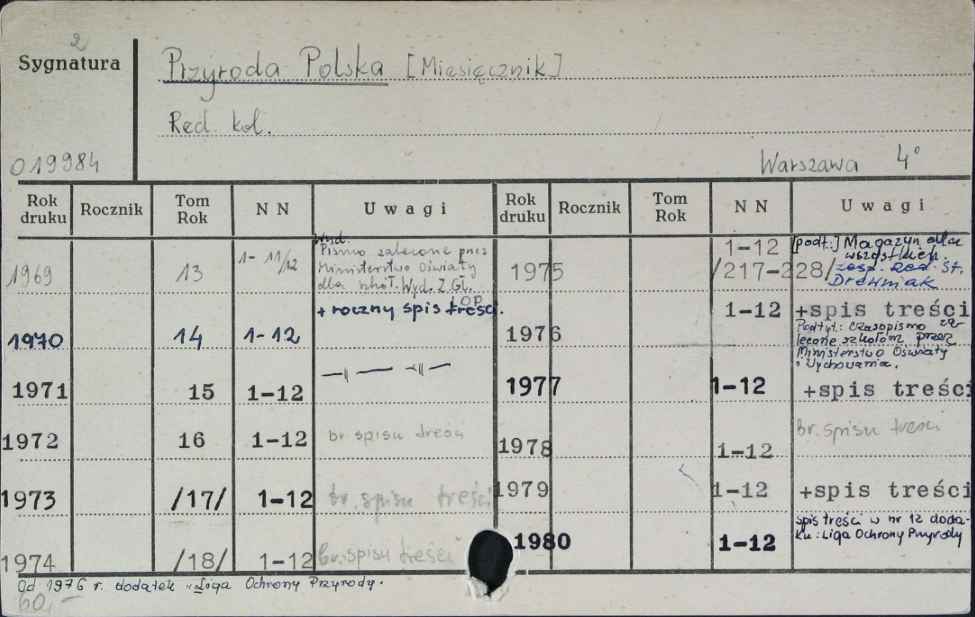 2
Sygnatura
Przyroda Polska [Miesięcznik]
Red. kol.
019984
Warszawa 4°
Rok druku Rocznik Tom Rok NN Uwagi Rok druku Rocznik Tom Rok NN Uwagi
1969 13 1-11/12
Wyd.
Pismo zalecone przez
Ministerstwo Oświaty
dla szkół. Wyd. Z. Gł.
LOP
1970 14 1-12 + roczny spis treści.
1971 15 1-12 —"— —"—
1972 16 1-12 br. spisu treści
1973 /17/ 1-12 br. spisu treści
1974 /18/ 1-12 br. spisu treści
1975 1-12 /217-228/
[podt.] Magazyn dla
wszystkich.
zesp. Red. St.
Drewniak
1976 1-12 +spis treści
Podtyt.: Czasopismo za
lecone szkołom przez
Ministerstwo Oświaty
i Wychowania.
1977 1-12 +spis treści
1978 1-12 br. spisu treści
1979 1-12 +spis treści
1980 1-12 spis treści w nr 12 doda-
ku: Liga Ochrony Przyrody
Od 1976 r. dodatek "Liga Ochrony Przyrody.
60,-